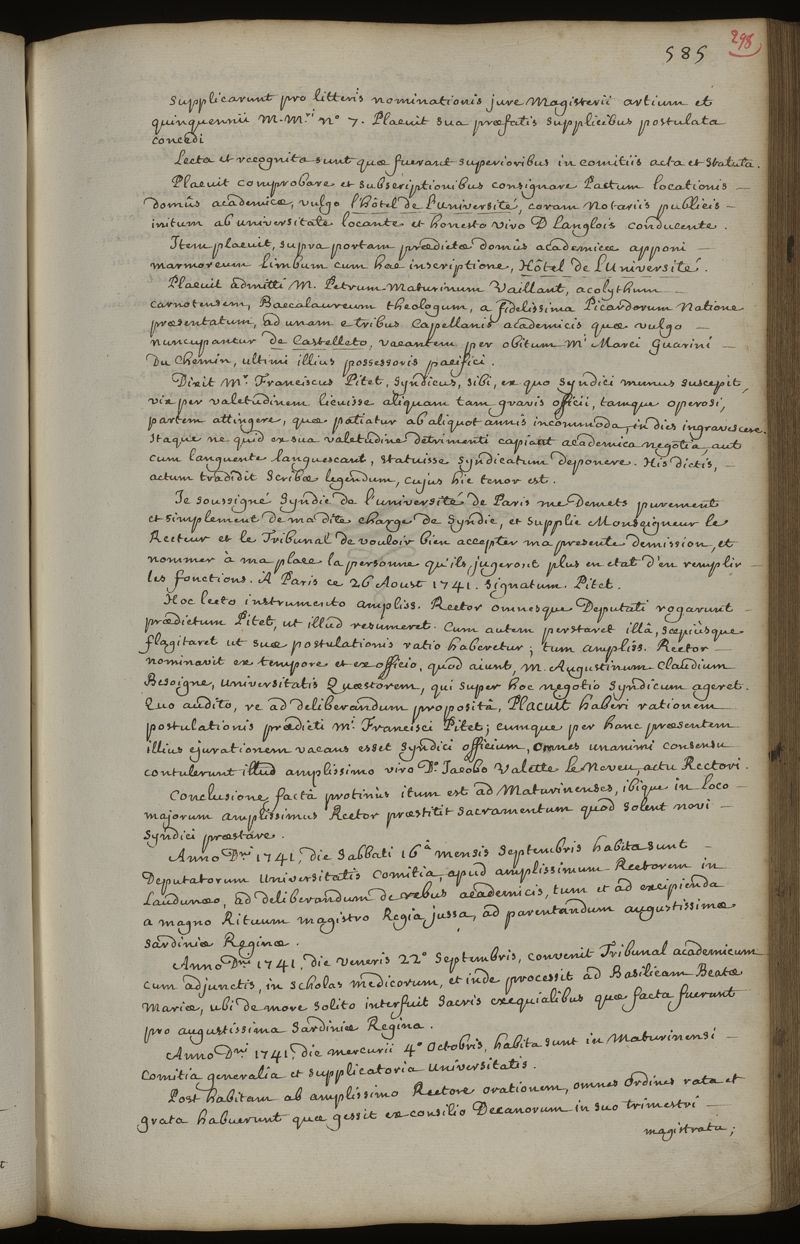 585
298
Supplicarunt pro litteris nominationis jure Magisterii artium et
quinquennii M.Mri. n° 7. Placuit sua præfatis supplicibus postulata
concedi
Lecta et recognita sunt quæ fuerant superioribus in comitiis acta et statuta.
Placuit comprobare et subscriptionibus consignare Pactum locationis —
domûs academicæ, vulgo l'hôtel de l'université, coram notariis publicis —
initum ab universitate locante et honesto viro D Langlois conducente.
Item placuit, supra portam prædictæ domûs academicæ apponi —
marmoreum limbum cum hac inscriptione, Hôtel de L'Université.
Placuit admitti M. Petrum-Maturinum Vaillant, acolythum —
carnotensem, Baccalaureum theologum, a fidelissima Picardorum Natione
præsentatum, ad unam e tribus Capellanis academicis quæ vulgo —
nuncupantur de Castelleto, vacantem per obitum Mi Marci Guarini —
Du Chemin, ultimi illius possessoris pacifici.
Dixit Mr. Franciscus Pitet, Syndicus, sibi, ex quo Syndici munus suscepit,
vix per valetudinem licuisse aliquam tam gravis officii, tamque operosi,
partem attingere, quæ patiatur ab aliquot annis incommoda, in dies ingravescere.
Itaque ne quid ex sua valetudine detrimenti capiant academica negotia, aut
cum languente languescant, statuisse Syndicatum deponere. His dictis, —
actum tradidit Scribæ legendum, cujus hic tenor est.
Je soussigné Syndic de l'université de Paris me Demets purement
et simplement de ma dite charge de Syndic, et supplie Monseigneur le
Recteur et le Tribunal de vouloir bien accepter ma presente demission, et
nommer à ma place la personne qu'ils jugeront plus en etat d'en remplir —
les fonctions. A Paris ce 26 Aoust 1741. Signatum. Pitet.
Hoc lecto instrumento ampliss. Rector omnesque Deputati rogarunt —
prædictum Pitet, ut illud resumeret. Cum autem perstaret illâ, sæpiùsque
flagitaret ut suæ postulationis ratio haberetur; tum ampliss. Rector —
nominavit ex tempore et ex officio, quod aiunt, M. Augustinum Claudium
Besoigne, Universitatis Quæstorem, qui super hoc negotio Syndicum ageret.
Quo audito, re ad deliberandum propositâ, Placuit haberi rationem
postulationis prædicti Mi. Francisci Pitet; cumque per hanc præsentem
illius ejurationem vacans esset Syndici officium, omnes unanimi consensu
contulerunt illud amplissimo viro Do. Jacobo Valette le Neveu, actu Rectori.
Conclusione factâ protinùs itum est ad Maturinenses, ibique in loco —
majorum amplissimus Rector præstitit Sacramentum quod solent novi —
Syndici præstare.
Anno Dni 1741, die Sabbati 16â mensis Septembris habita sunt —
Deputatorum Universitatis Comitia, apud amplissimum Rectorem in
Laudunæo, ad deliberandum de rebus academicis, tum et ad excipienda
a magno Rituum magistro Regia jussa, ad parentandum augustissimæ
Sardiniæ Reginæ.
Anno Dni 1741, die veneris 22â Septembris, convenit Tribunal academicum
cum adjunctis, in scholas medicorum, et inde processit ad Basilicam Beatæ
Mariæ, ubi de more solito interfuit Sacris exequialibus quæ facta fuerunt
pro augustissima Sardiniæ Regina.
Anno Dni 1741, die mercurii 4â Octobris, habita sunt in Maturinensi —
Comitia generalia et supplicatoria Universitatis.
Post habitam ab amplissimo Rectore orationem, omnes ordines rata et
grata habuerunt quæ gessit ex consilio Decanorum in suo trimestri —
magistratu;